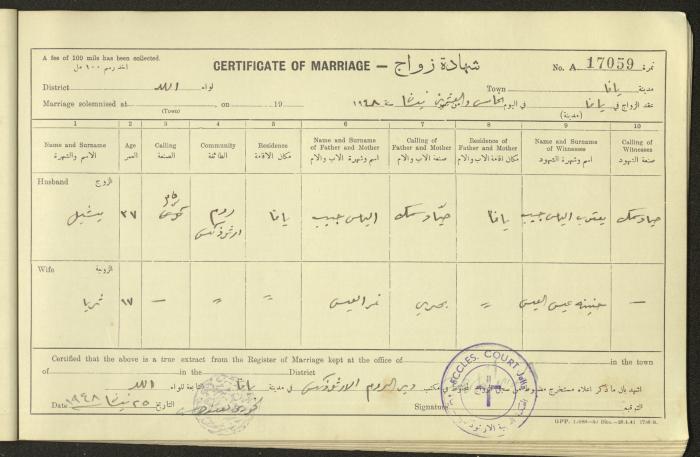 A fee of 100 mils has been collected.
اخذ رسم ١٠٠ مل
CERTIFICATE OF MARRIAGE — شهادة زواج
No. A 17059 نمرة
District اللد لواء
Town يافا مدينة
Marriage solemnised at , on 19
(Town)
عقد الزواج في يافا في اليوم الخامس والعشرين نيسان سنة ١٩٤٨
(مدينة)
1 2 3 4 5 6 7 8 9 10
Name and Surname الاسم والشهرة
Age العمر
Calling الصنعة
Community الطائفة
Residence مكان الاقامة
Name and Surname of Father and Mother اسم وشهرة الاب والام
Calling of Father and Mother صنعة الاب والام
Residence of Father and Mother مكان اقامة الاب والام
Name and Surname of Witnesses اسم وشهرة الشهود
Calling of Witnesses صنعة الشهود
Husband الزوج
ميشيل ٢٧ روم ارثوذكس يافا الياس حبيب صياد سمك يافا يعقوب الياس حبيب صياد سمك
Wife الزوجة
ثريا ١٧ — " " نمر العيسى بحري " عيسى العيسى —
Certified that the above is a true extract from the Register of Marriage kept at the office of in the town
of in the District
اشهد بان ما ذكر اعلاه مستخرج سجل الزواج في مكتب دير الروم الارثوذكس في مدينة يافا التابعة للواء اللد
Date التاريخ ٢٥ نيسان ١٩٤٨
Signature التوقيع
ECCLES. COURT Jaffa